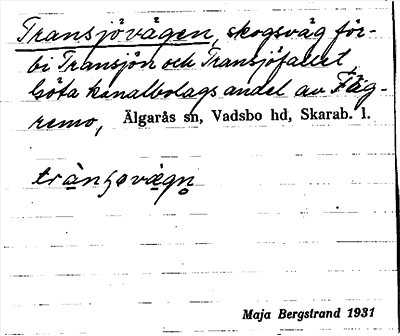 Transjövägen, skogsväg för-
bi Transjön och Transjöfallet,
Göta kanalbolags andel av Fläg-
remo, Älgarås sn, Vadsbo hd, Skarab. l.
Maja Bergstrand 1931